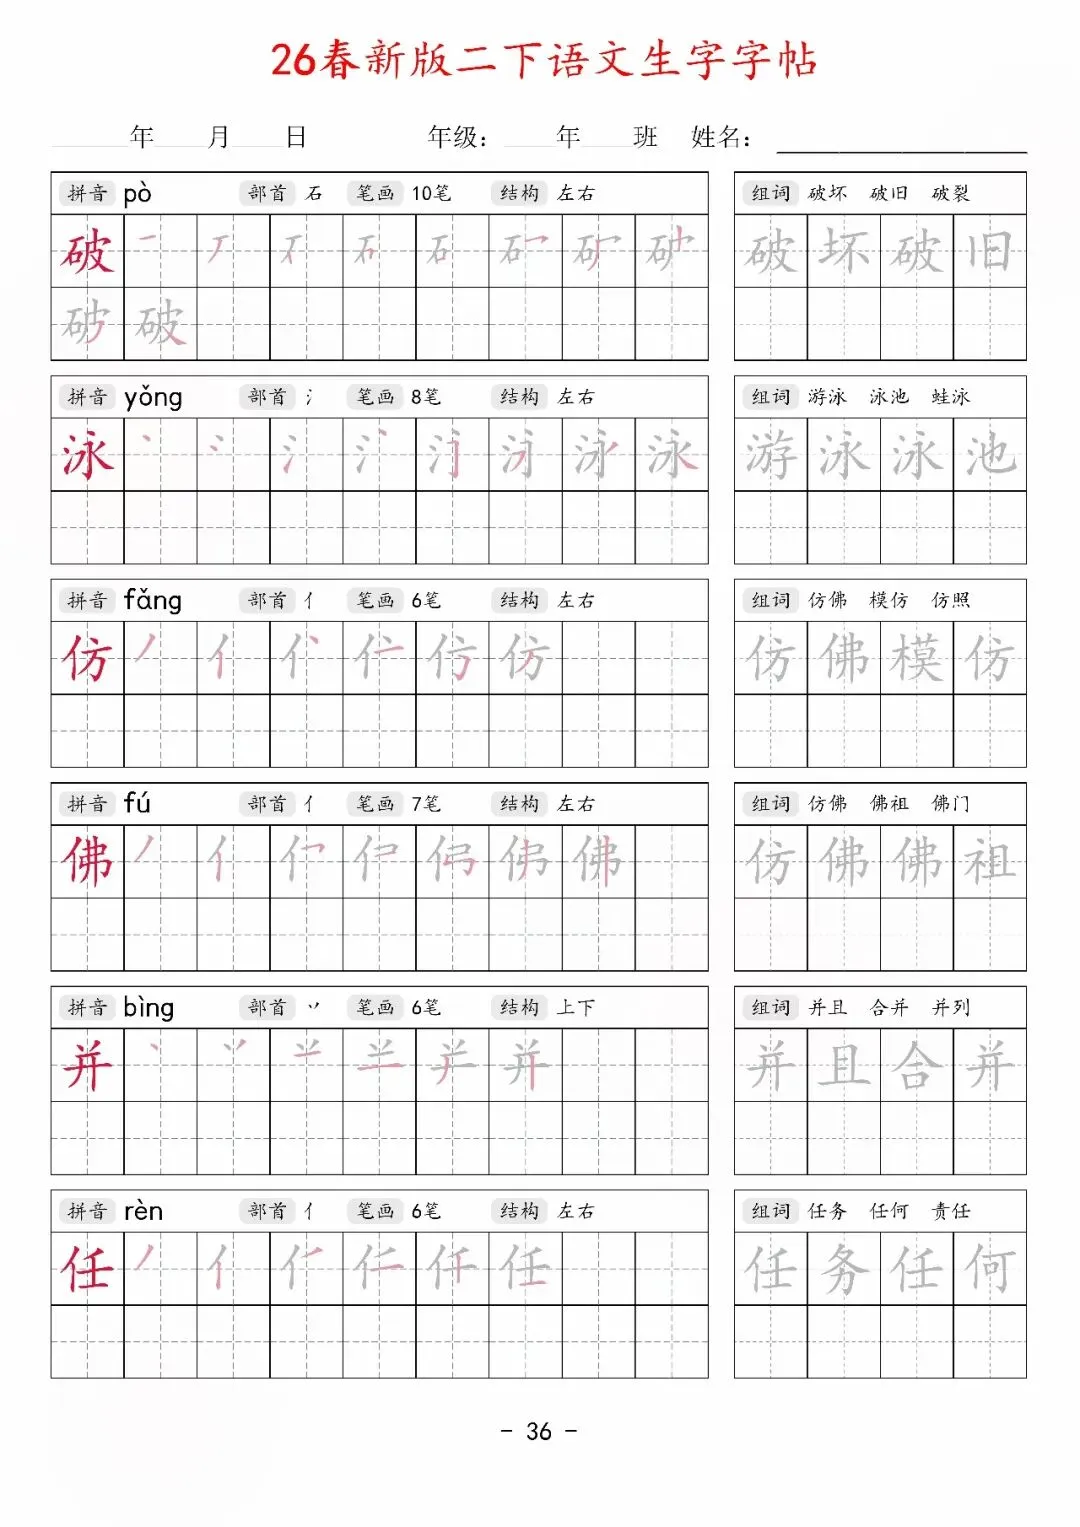 26春新版二下语文生字字帖
年 月 日 年级： 年 班 姓名：
拼音 pò 部首 石 笔画 10笔 结构 左右
组词 破坏 破旧 破裂
破
破 坏 破 旧
破
拼音 yǒng 部首 氵 笔画 8笔 结构 左右
组词 游泳 泳池 蛙泳
泳
游 泳 泳 池
拼音 fǎng 部首 亻 笔画 6笔 结构 左右
组词 仿佛 模仿 仿照
仿
仿 佛 模 仿
拼音 fú 部首 亻 笔画 7笔 结构 左右
组词 仿佛 佛祖 佛门
佛
仿 佛 佛 祖
拼音 bìng 部首 丷 笔画 6笔 结构 上下
组词 并且 合并 并列
并
并 且 合 并
拼音 rèn 部首 亻 笔画 6笔 结构 左右
组词 任务 任何 责任
任
任 务 任 何
- 36 -